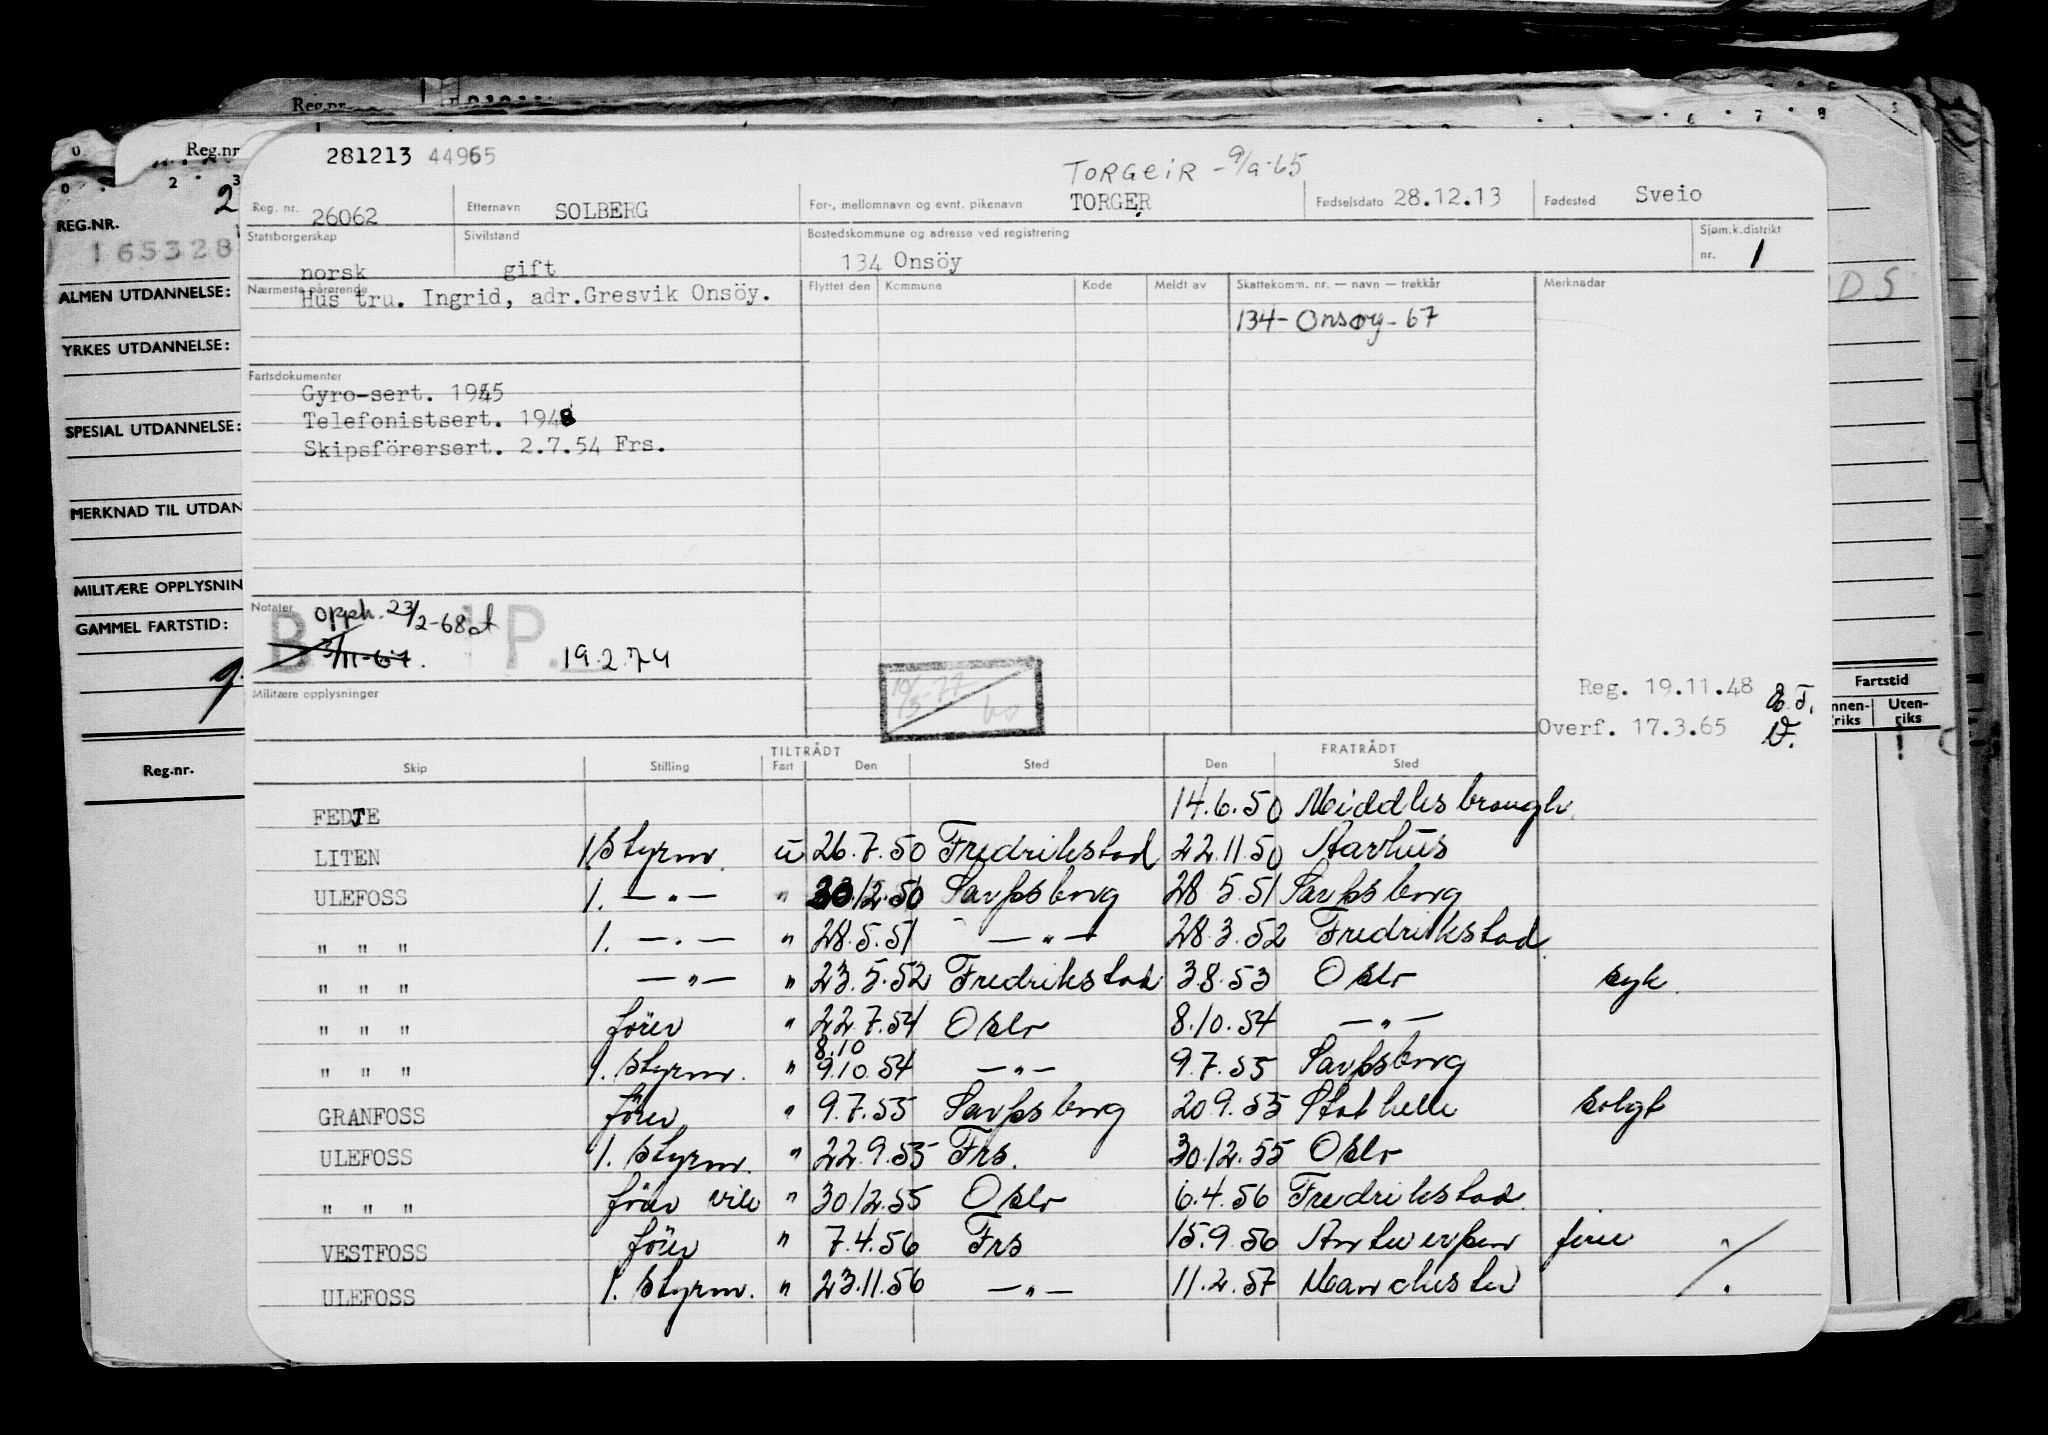 Reg.nr.
Reg.nr
281213 44965
TORGEIR - 9/9-65
REG.NR.
165328
Reg. nr. 26062 Etternavn SOLBERG For-, mellomnavn og evnt. pikenavn TORGER Fødselsdato 28.12.13 Fødested Sveio
Statsborgerskap norsk Sivilstand gift Bostedskommune og adresse ved registrering 134 Onsöy Sjøm.k.distrikt nr. 1
ALMEN UTDANNELSE:
Nærmeste pårørende Hus tru. Ingrid, adr.Gresvik Onsöy. Flyttet den Kommune Kode Meldt av Skattekomm. nr. — navn — trekkår Merknader
134 - Onsøy - 67
YRKES UTDANNELSE:
Fartsdokumenter
Gyro-sert. 1945
Telefonistsert. 1948
SPESIAL UTDANNELSE:
Skipsförersert. 2.7.54 Frs.
MERKNAD TIL UTDAN
MILITÆRE OPPLYSNIN
GAMMEL FARTSTID:
Notater
B Opph. 23/2-68 P.
3/11-67. 19.2.74
10/3-77
Militære opplysninger
Reg. 19.11.48
Overf. 17.3.65
Fartstid
nnen-riks Uten-riks
Reg.nr.
TILTRÅDT FRATRÅDT
Skip Stilling Fart Den Sted Den Sted
FEDTE 14.6.50 Middlesbrough
LITEN 1 Styrm. u 26.7.50 Fredrikstad 22.11.50 Aarhus
ULEFOSS 1. — " — " 30.12.50 Sarpsborg 28.5.51 Sarpsborg
" " " 1. — " — " 28.5.51 — " — 28.3.52 Fredrikstad
" " " — " — " 23.5.52 Fredrikstad 3.8.53 Oslo syk.
" " " förer " 22.7.54 Oslo 8.10.54 — " —
8.10
" " " 1. Styrm. " 9.10.54 — " — 9.7.55 Sarpsborg
GRANFOSS förer " 9.7.55 Sarpsborg 20.9.55 Stathelle solgt
ULEFOSS 1. Styrm. " 22.9.55 Frs. 30.12.55 Oslo
" " " förer vik " 30.12.55 Oslo 6.4.56 Fredrikstad.
VESTFOSS förer " 7.4.56 Frs 15.9.56 Antwerpen ferie
ULEFOSS 1. Styrm. " 23.11.56 — " — 11.2.57 Manchester